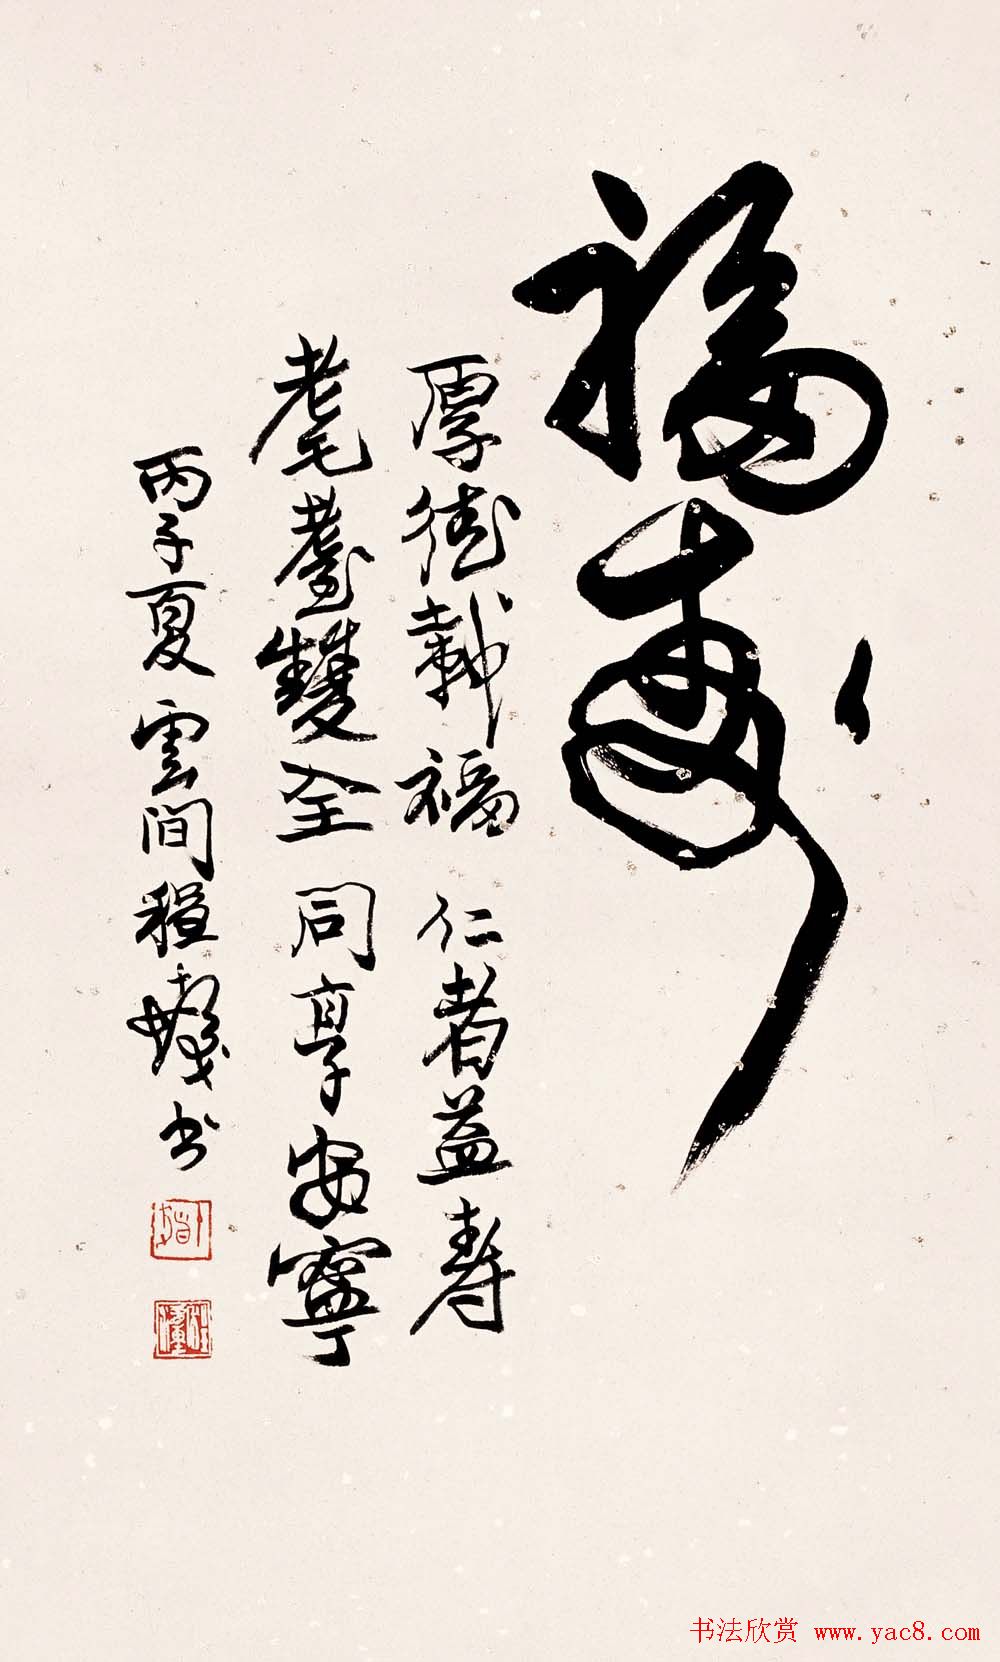 福寿
厚德载福 仁者益寿
耄耋雙全 同享安寧
丙子夏 雲間程十發书
书法欣赏 www.yac8.com